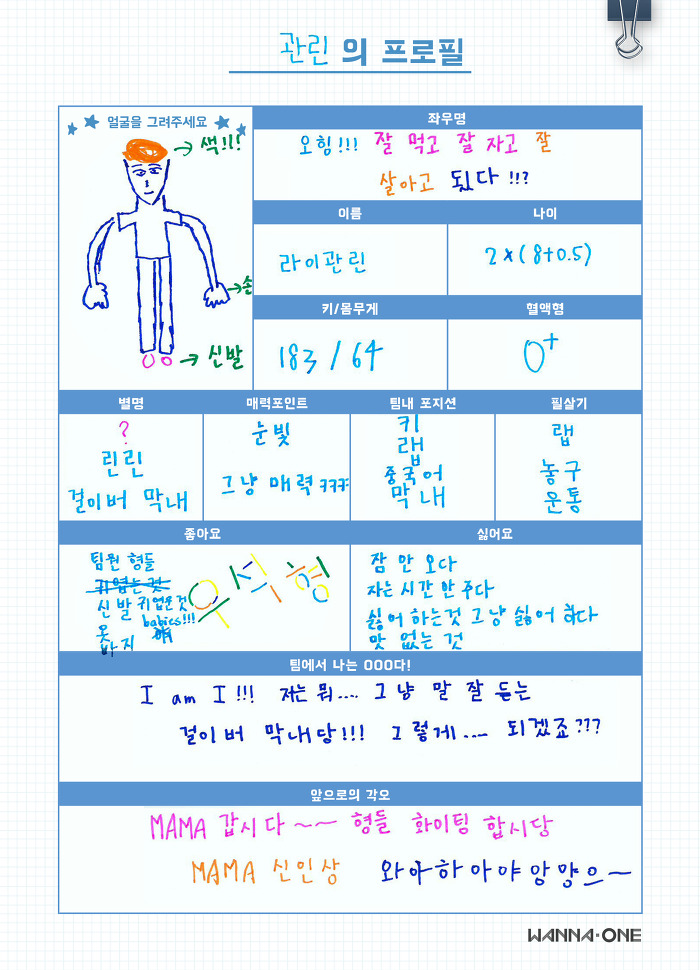 관린 의 프로필
얼굴을 그려주세요
색!!!
손
신발
좌우명
오힘!!! 잘 먹고 잘 자고 잘
살아고 됬다 !!?
이름
라이관린
나이
2×(8+0.5)
키/몸무게
183 / 64
혈액형
O+
별명
?
린린
걸이버 막내
매력포인트
눈빛
그냥 매력 ㅋㅋㅋ
팀내 포지션
키
랩
중국어
막내
필살기
랩
농구
운통
좋아요
팀원 형들
귀엽는 것
신발 귀엽은 것
babies!!!
옷
바지
우석형
싫어요
잠 안 오다
자는 시간 안 주다
싫어 하는것 그냥 싫어 하다
맛 없는 것
팀에서 나는 OOO다!
I am I !!! 저는 뭐.... 그냥 말 잘 듣는
걸이버 막내당!!! 그렇게.... 되겠죠???
앞으로의 각오
MAMA 갑시다 ~~ 형들 화이팅 합시당
MAMA 신인상 와아하아야앙먕으~
WANNA·ONE